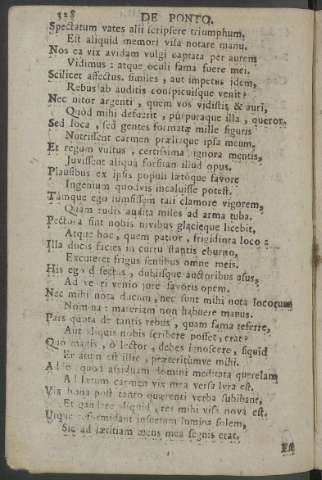 328 DE PONTO.
Spectatum vates alii scripsere triumphum,
Est aliquid memori visa notare manu.
Nos ea vix avidam vulgi captata per aurem
Vidimus : atque oculi fama fuere mei.
Scilicet affectus similes, aut impetus idem,
Rebus ab auditis conspicuisque venit?
Nec nitor argenti, quem vos vidistis, & auri,
Quòd mihi defuerit, purpuraque illa, queror.
Sed loca, sed gentes formatæ mille figuris
Nutrissent carmen præliaque ipsa meum.
Et regum vultus, certissima pignora mentis,
Juvissent aliqua forsitan illud opus.
Plausibus ex ipsis populi lætoque favore
Ingenium quodvis incaluisse potest.
Tamque ego sumsissem tali clamore vigorem,
Quàm rudis audita miles ad arma tuba.
Pectora sint nobis nivibus glacieque licebit,
Atque hoc, quem patior, frigidiora loco :
Illa ducis facies in curru stantis eburno,
Excuteret frigus sensibus omne meis.
His ego defectus, dubiisque auctoribus usus,
Ad vestri venio jure favoris opem.
Nec mihi nota ducum, nec sunt mihi nota locorum
Nomina : materiam non habuere manus.
Pars quota de tantis rebus, quam fama referre,
Aut aliquis nobis scribere posset, erat?
Quo magis, ô lector, debes ignoscere, siquid
Erratum est illic, præteritumve mihi.
Adde, quod assiduam domini meditata querelam
Ad lætum carmen vix mea versa lyra est.
Vix bona post tanto quærenti verba subibant,
Et gaudere aliquid, res mihi visa nova est.
Utque reformidant insuetum lumina solem,
Sic ad lætitiam mens mea segnis erat.